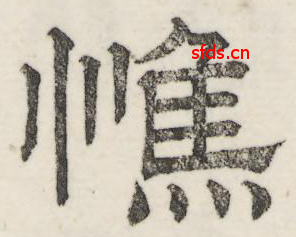 憔
sfds.cn